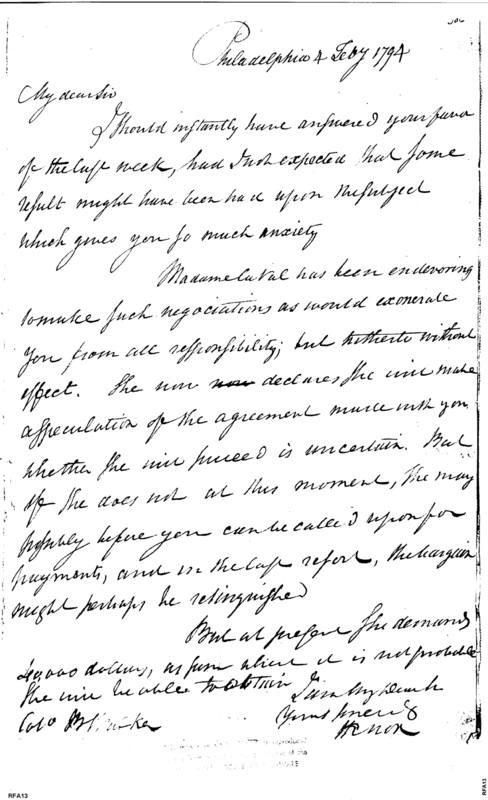 Philadelphia 4 Feby 1794
My dear Sir
I should instantly have answered your favor
of the last week, had I not expected that some
result might have been had upon the subject
which gives you so much anxiety
Madame Laval has been endevoring
to make such negociations as would exonerate
you from all responsibility; but hitherto without
effect. She now now declares she will make
a speculation of the agreement made with you
whether she will succeed is uncertain. But
if she does not at this moment, she may
probably before you can be called upon for
payments, and in the last resort, the bargain
might perhaps be relinquished
But at present she demands
40,000 dollars, a sum which it is not probable
she will be able to obtain
I am My Dear Sir
Yours sincerely
HKnox
Colo
RFA13
RFA13